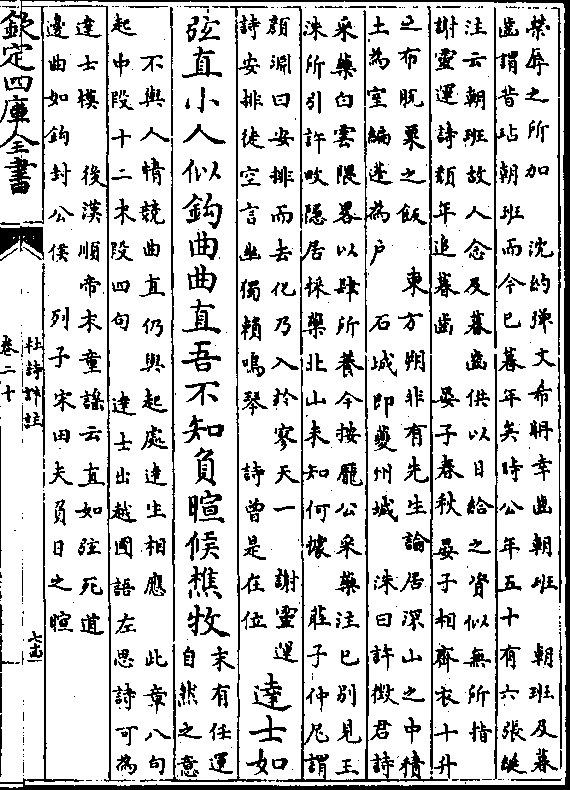 榮辱之所加　沈約彈文希聃幸齒朝班　朝班及暮
齒謂昔玷朝班而今已暮年矣時公年五十有六張綖
注云朝班故人念及暮齒供以日給之資似無所指
謝靈運詩頹年迫暮齒　晏子春秋晏子相齊衣十升
之布脫粟之飯　東方朔非有先生論居深山之中積
土為室編蓬為户　石城即夔州城　洙曰許徵君詩
采藥白雲隈畧以肆所養今按龐公采藥注已別見王
洙所引許畋隱居採藥北山未知何據　莊子仲尼謂
顔淵曰安排而去化乃入於寥天一　謝靈運
詩安排徒空言幽獨賴鳴琴　詩曾是在位
達士如
弦直小人似鈎曲曲直吾不知負暄候樵牧
末有任運
自然之意
不與人情競曲直仍與起處達生相應　此章八句
起中段十二末段四句　達士出越國語左思詩可為
達士模　後漢順帝末童謡云直如弦死道
邊曲如鈎封公侯　列子宋田夫負日之暄
欽定四庫全書
杜詩詳註
卷二十